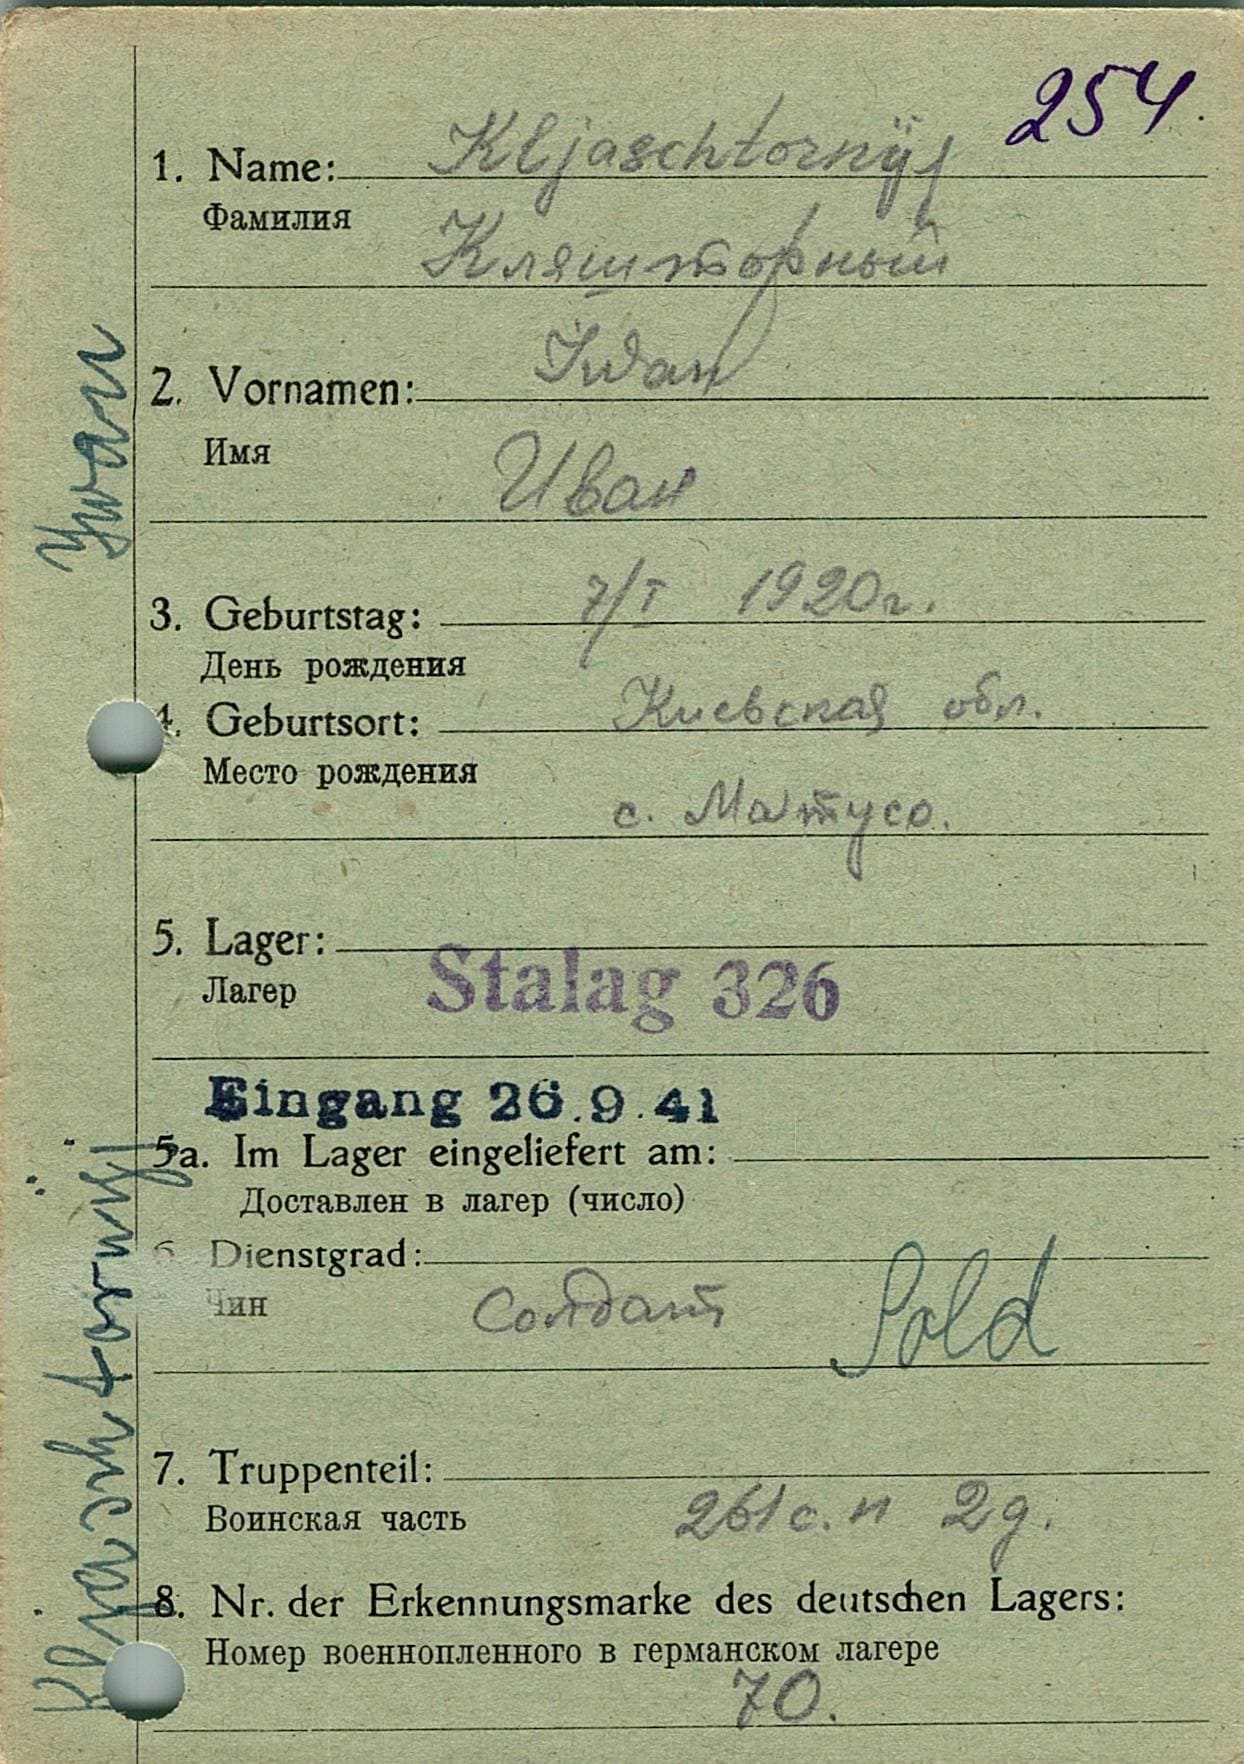 254.
1. Name: Kljaschtornÿj
Фамилия
Кляшторный
2. Vornamen: Iwan
Имя
Иван
3. Geburtstag: 7/I 1920г.
День рождения
4. Geburtsort: Киевская обл.
Место рождения
с. Матусо.
5. Lager:
Лагер
Stalag 326
Eingang 26.9.41
5a. Im Lager eingeliefert am:
Доставлен в лагер (число)
6. Dienstgrad:
Чин
Солдат Sold
7. Truppenteil:
Воинская часть
261 с. п 2д.
8. Nr. der Erkennungsmarke des deutschen Lagers:
Номер военнопленного в германском лагере
70.
Kljaschtornÿj Ywan